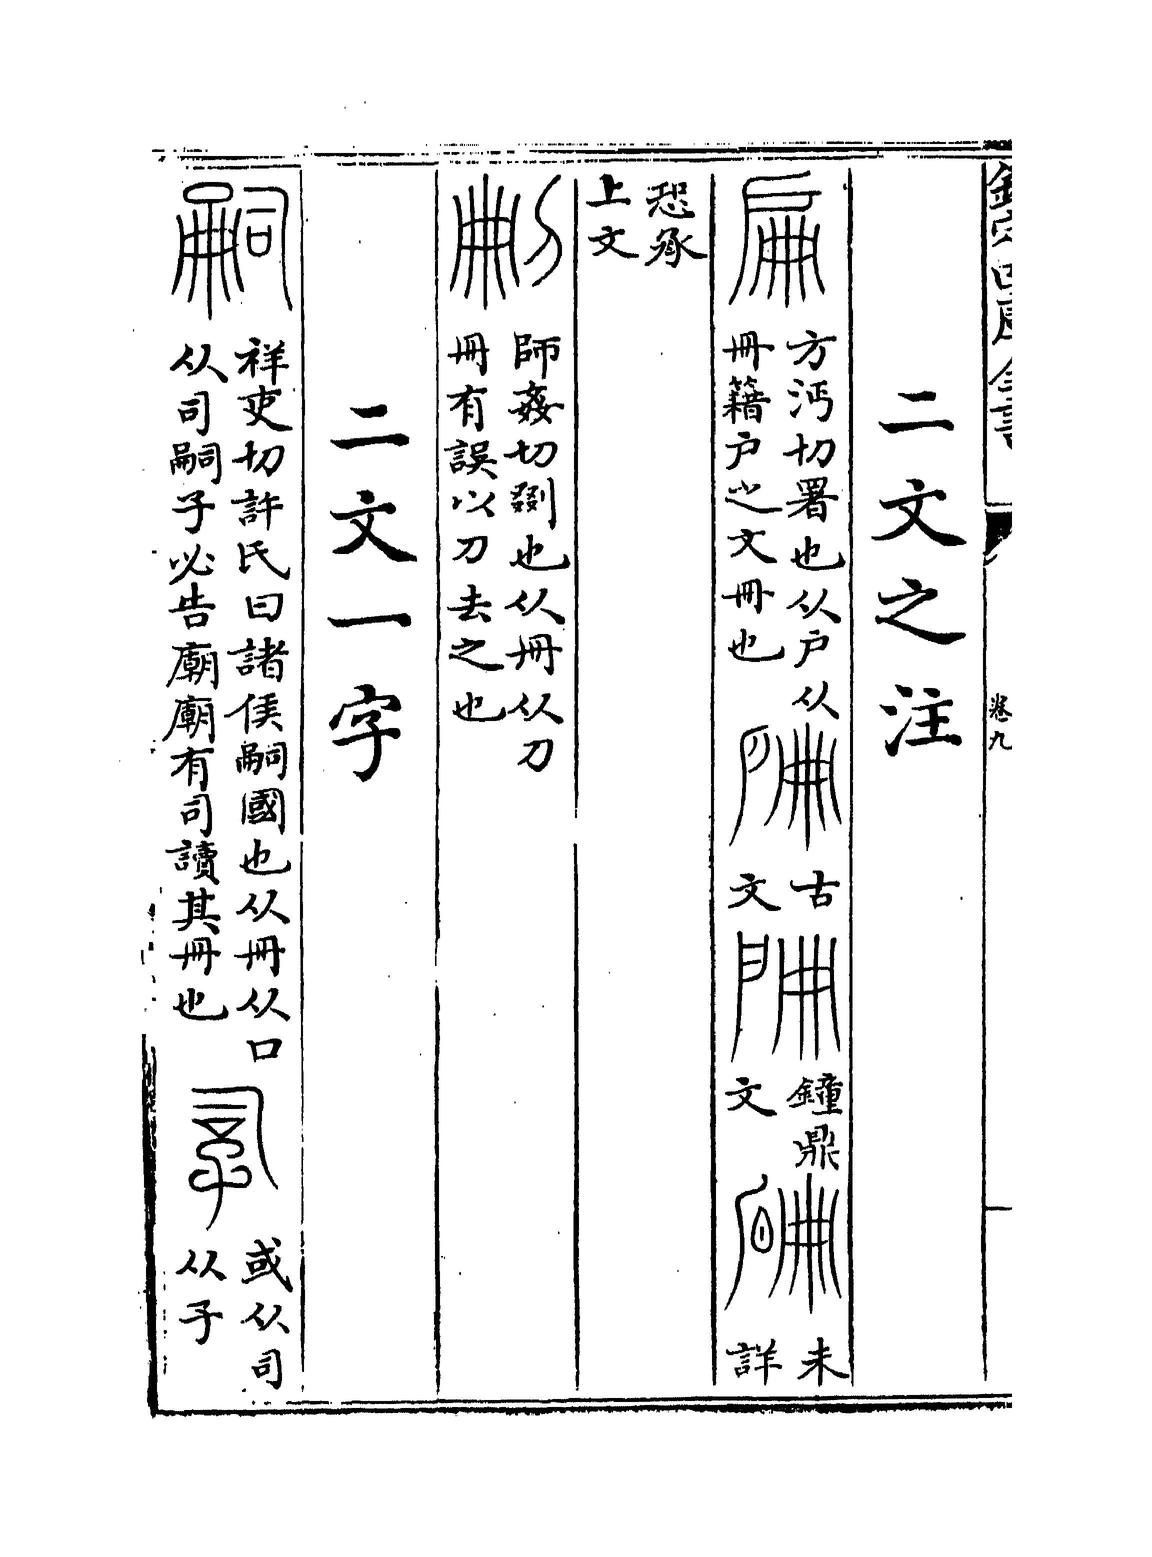 欽定四庫全書
卷九
二文之注
扁
方沔切署也从戶从
冊籍戶之文冊也
古
文
鐘鼎
文
未
詳
恐承
上文
刪
師姦切剟也从冊从刀
冊有誤以刀去之也
二文一字
嗣
祥吏切許氏曰諸侯嗣國也从冊从口
从司嗣子必告廟廟有司讀其冊也
或从司
从子